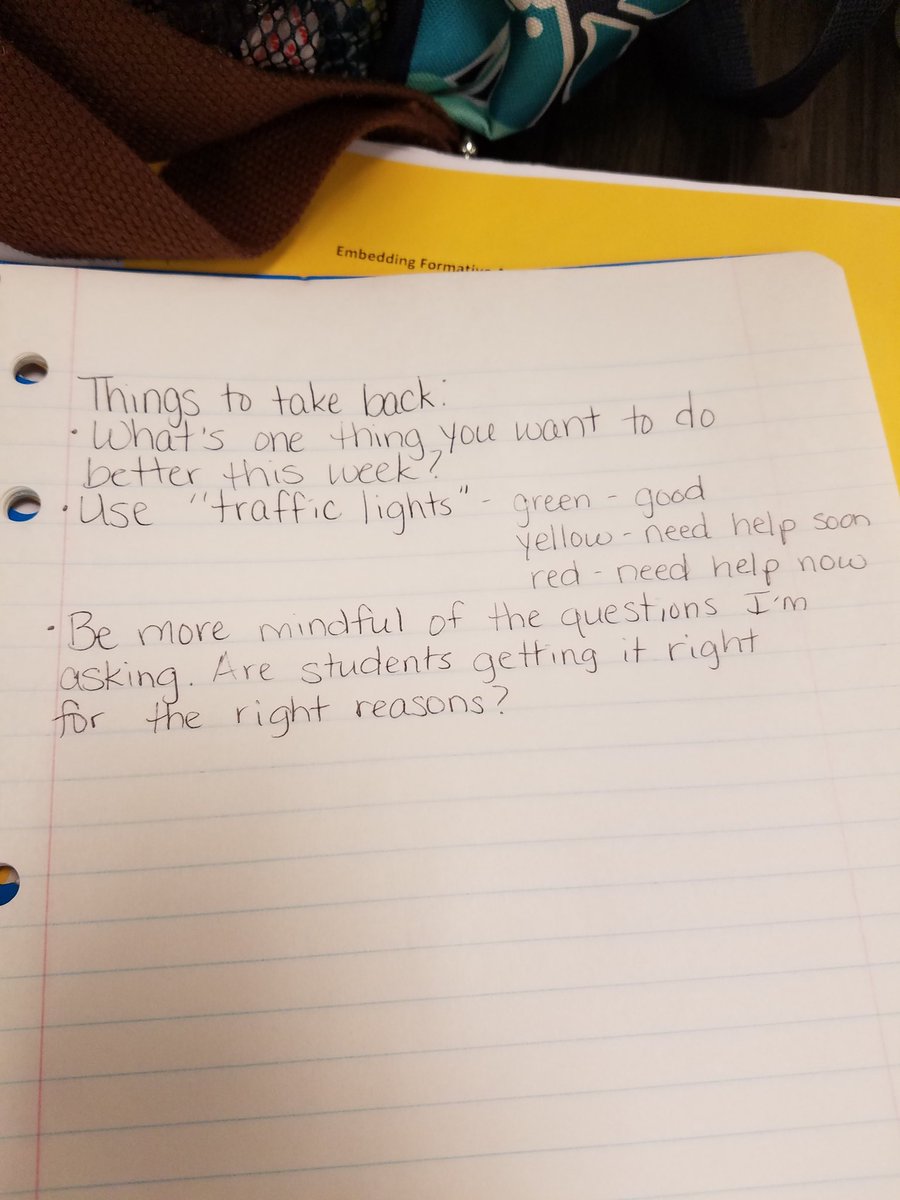 Embedding Formative
Things to take back:
• What's one thing you want to do
better this week?
• Use "traffic lights" - green - good
yellow - need help soon
red - need help now
• Be more mindful of the questions I'm
asking. Are students getting it right
for the right reasons?